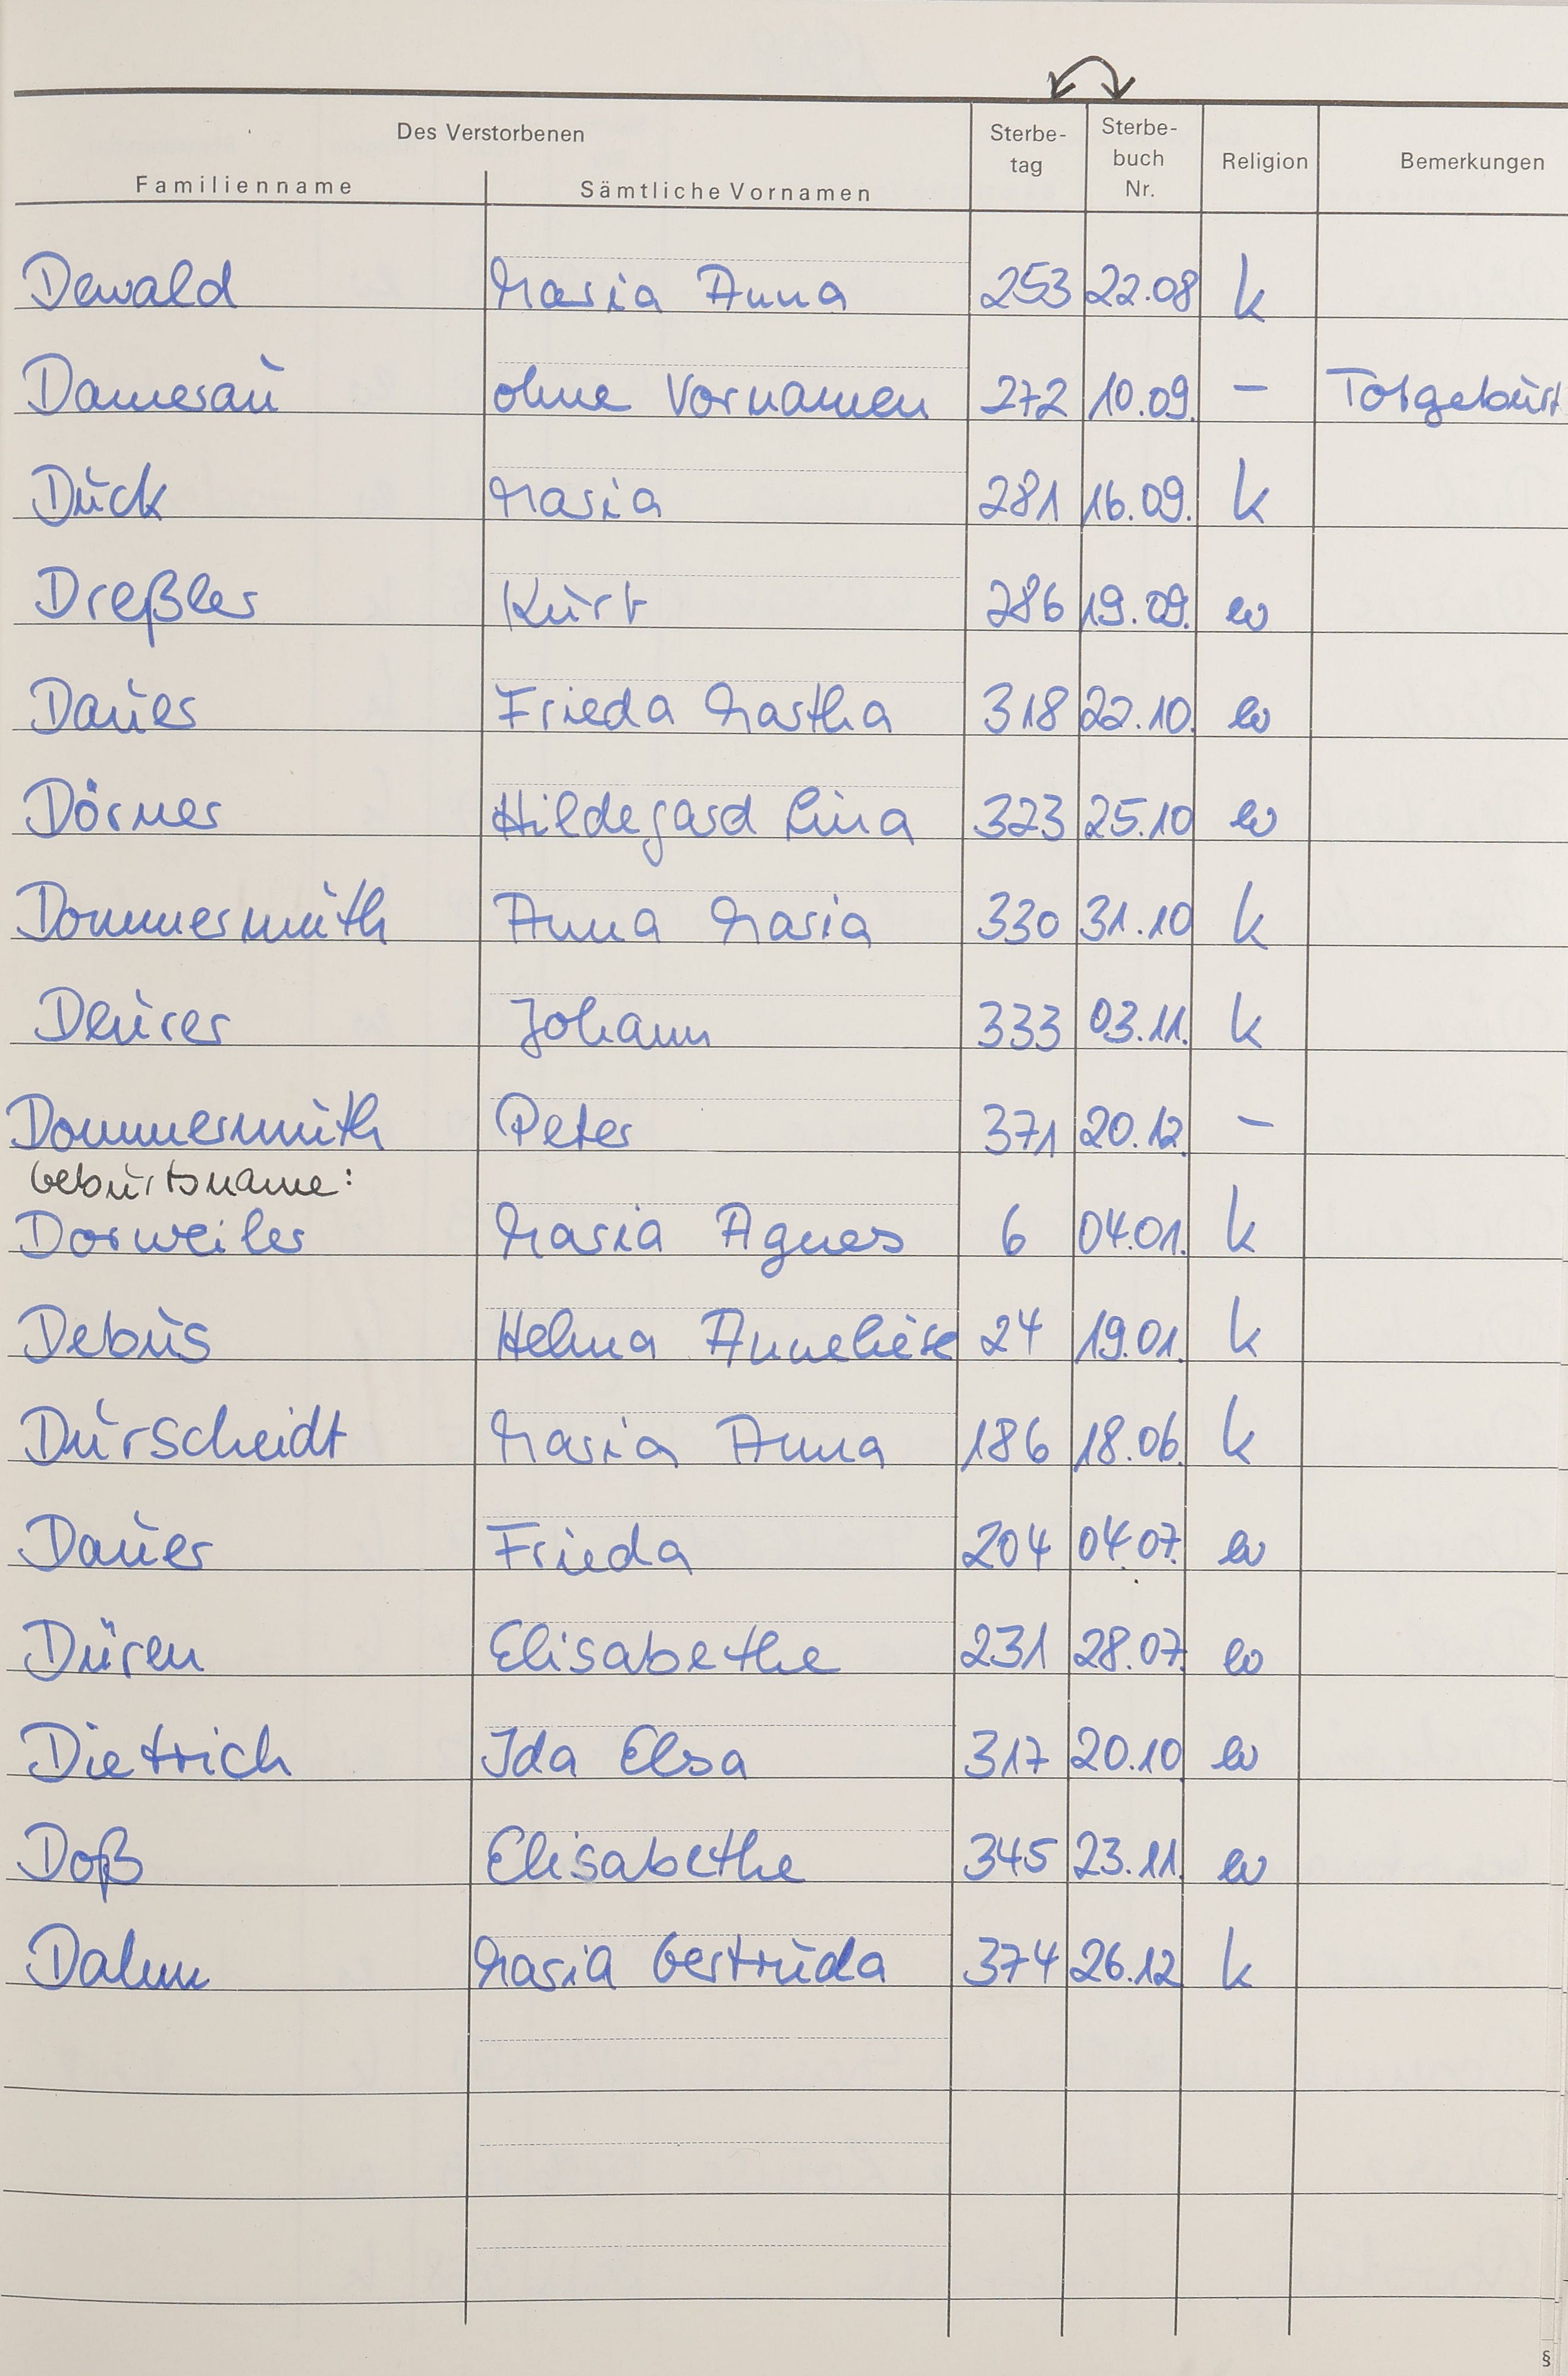 Des Verstorbenen
Familienname Sämtliche Vornamen Sterbe-tag Sterbe-buch Nr. Religion Bemerkungen
Dewald Maria Anna 253 22.08 k
Damerau ohne Vornamen 272 10.09. – Totgeburt
Duck Maria 281 16.09. k
Dreßler Kurt 286 19.09. ev
Dauer Frieda Martha 318 22.10. ev
Dörner Hildegard Lina 323 25.10 ev
Dommermuth Anna Maria 330 31.10 k
Deurer Johann 333 03.11. k
Dommermuth Peter 371 20.12. –
Geburtsname:
Dorweiler Maria Agnes 6 04.01. k
Debus Helma Anneliese 24 19.01. k
Durscheidt Maria Anna 186 18.06. k
Dauer Frieda 204 04.07. ev
Düren Elisabethe 231 28.07. ev
Dietrich Ida Elsa 317 20.10 ev
Doß Elisabethe 345 23.11. ev
Dahm Maria Gertruda 374 26.12 k
§